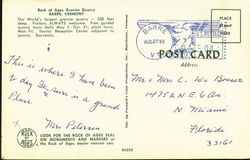 Rock of Ages Granite Quarry
BARRE, VERMONT
The World's largest granite quarry — 350 feet
deep. Visitors ALWAYS welcome. Free guided
quarry tours daily May 1 - Oct. 31, plant tours,
Mon.-Fri. Tourist Reception Center adjacent to
quarry. Souvenirs.
BARRE
POST CARD
Address
This is where I have been
to day. It is in a grand
Place
Mrs Peterson
Mr & Mrs C.
14758 N.E. 6 Av.
N Miami
Florida
33161
ROCK OF AGES
LOOK FOR THE ROCK OF AGES SEAL ON
MONUMENTS AND MARKERS at
the Rock of Ages dealer nearest to
you.